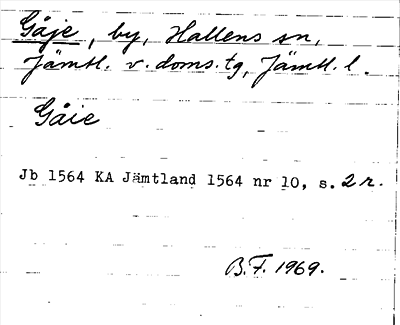 Gåje, by, Hallens sn,
Jämtl. v. doms. tg, Jämtl. l.
Gåie
Jb 1564 KA Jämtland 1564 nr 10, s. 2 r.
B.F. 1969.